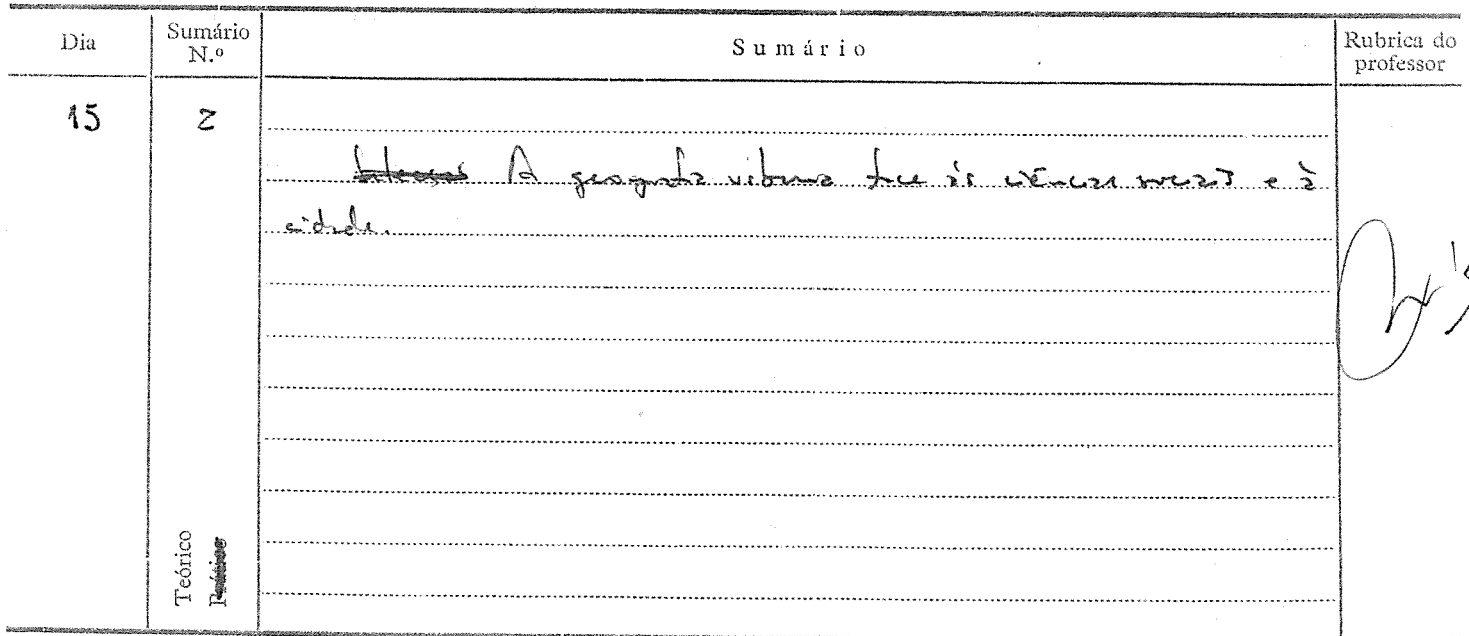 Dia
Sumário N.º
Sumário
Rubrica do professor
15
2
A geografia urbana face às ciências sociais e à
cidade.
Teórico
Prático